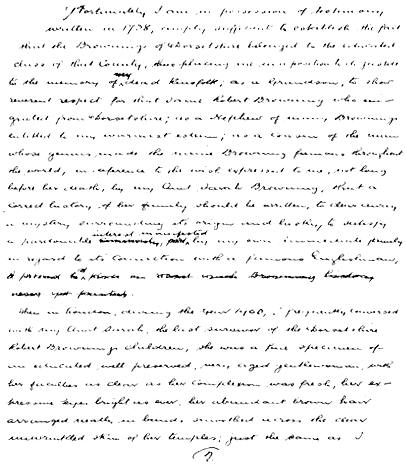 Fortunately I am in possession of testimony
written in 1738, amply sufficient to establish the fact
that the Brownings of Dorsetshire belonged to the educated
class of that County, thus placing me in position to do justice
to the memory of my dead Kinsfolk; as a Grandson, to show
reverent respect for that same Robert Browning who emi-
grated from Dorsetshire; as a Nephew of many Brownings
entitled to my warmest esteem; as a cousin of the man
whose genius made the name Browning famous throughout
the world, in reference to the wish expressed to me, not long
before her death, by my Aunt Sarah Browning, that a
correct history of her family should be written, to clear away
a mystery surrounding its origin and lastly to satisfy
a pardonable interest manifested by my own immediate family
in regard to its connection with a famous Englishman,
never yet printed.
When in London, during the year 1900, I frequently conversed
with my Aunt Sarah, the last survivor of the Dorsetshire
Robert Browning's children, she was a fine specimen of
an educated, well preserved, very aged gentlewoman, with
her faculties as clear as her complexion was fresh, her ex-
pressive eyes bright as ever, her abundant brown hair
arranged neatly in bands, smoothed across the clear
unwrinkled skin of her temples; just the same as I